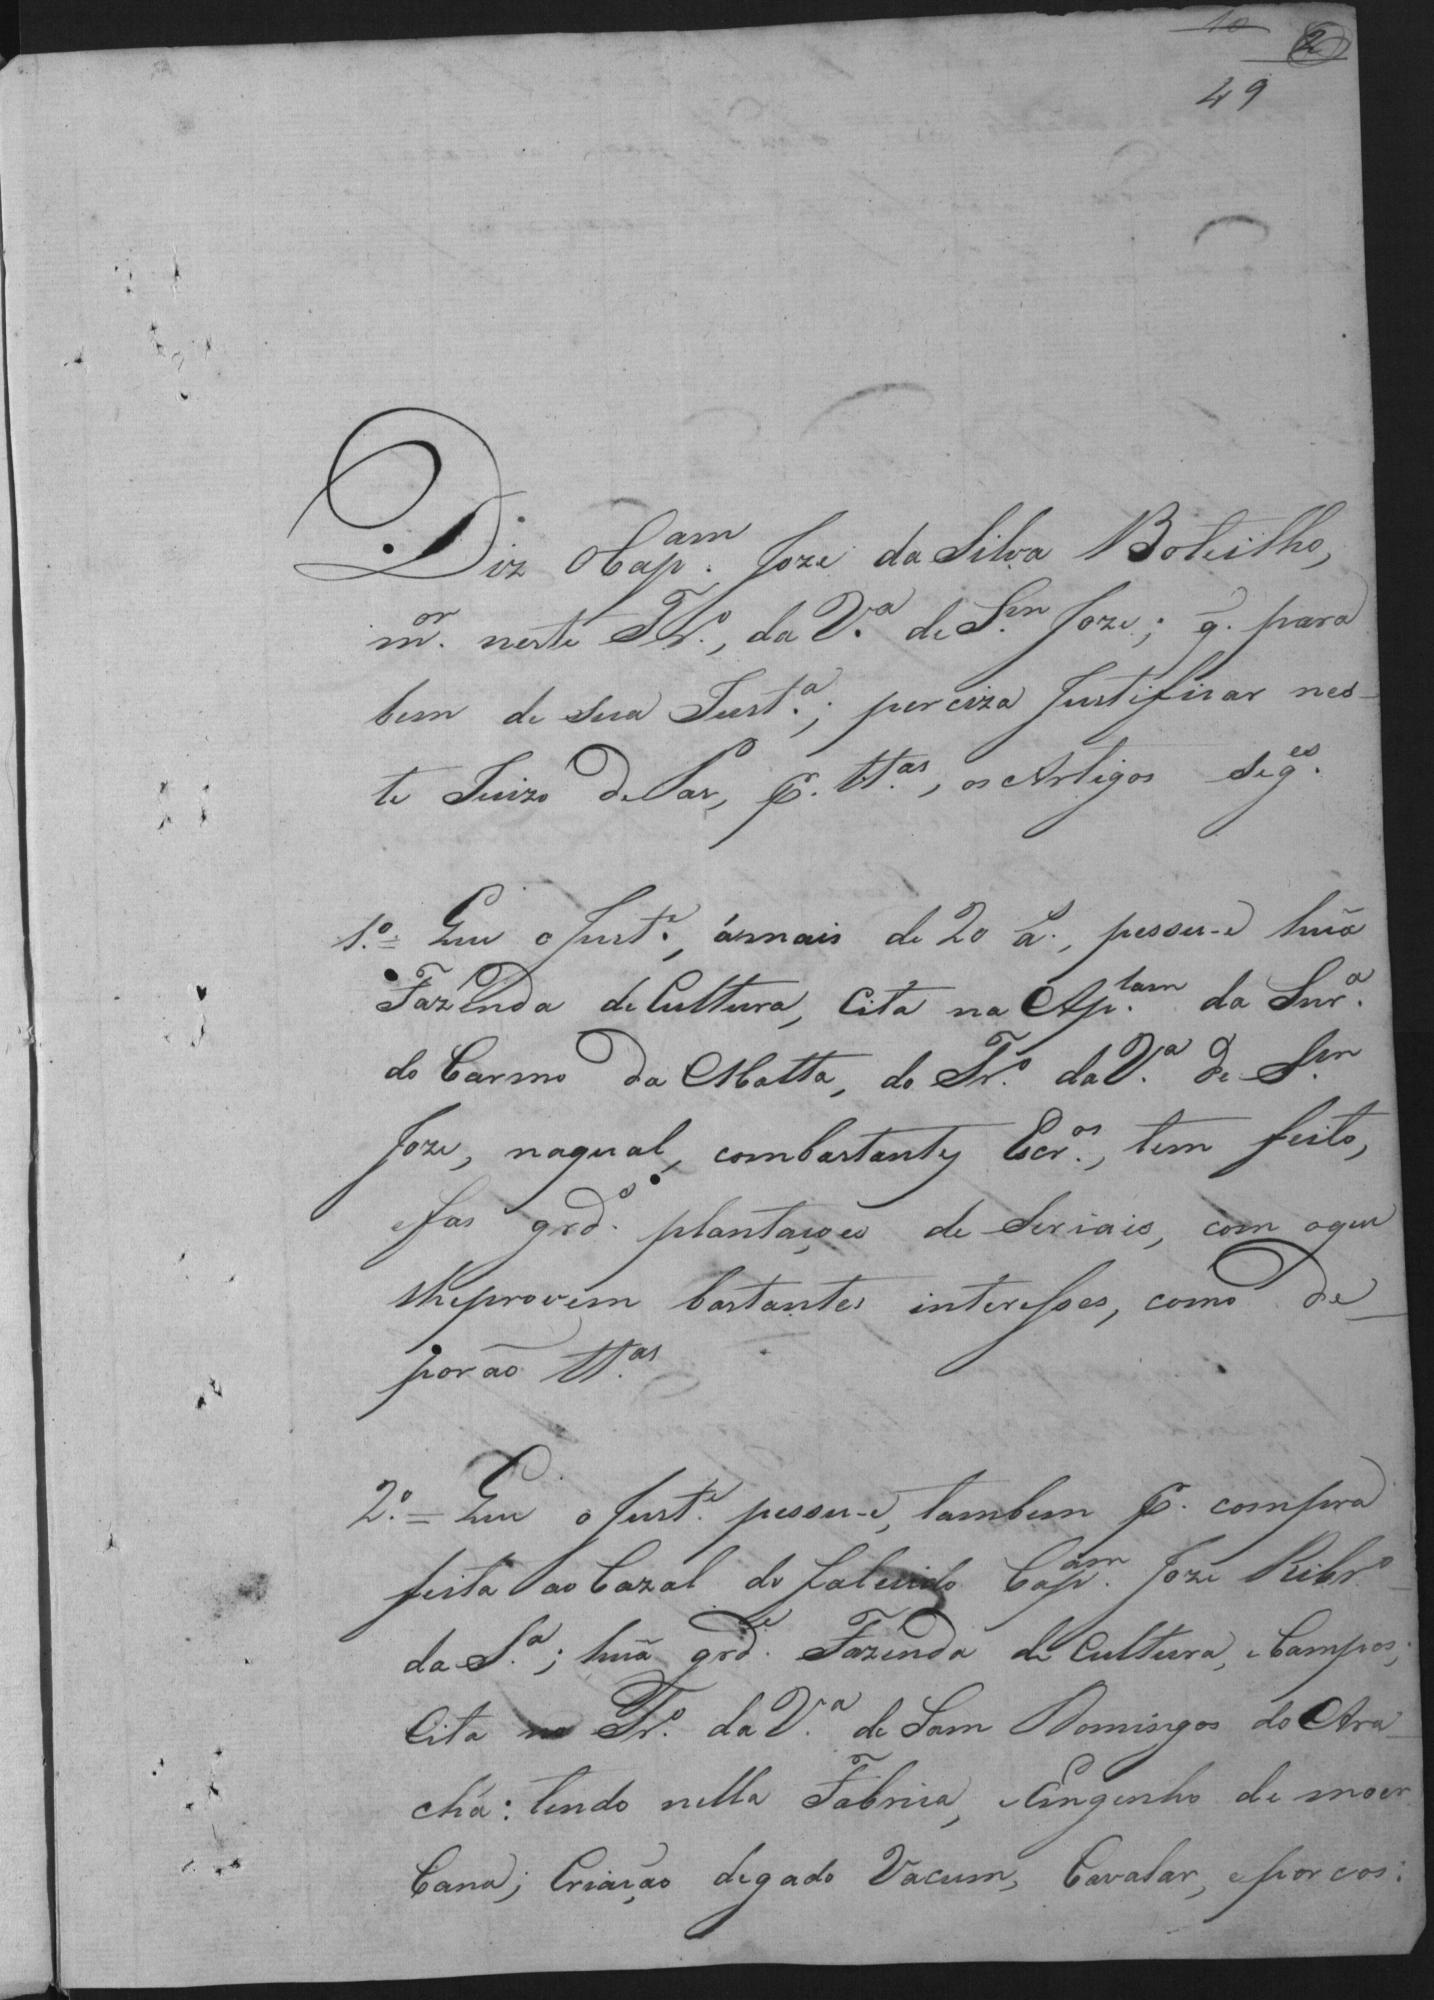 10 2
49
Diz o Cap.am Joze da Silva Boteilho,
m.or neste Tr.o, da V.a de S.m Joze; q. para
bem de sua Just.a; perciza Justificar nes-
te Juizo de Pas, p. tt.as, os Artigos seg.es
1.o = Que o Just.e, ámais de 20 a.s, pessu-e huã
Fazenda de Cultura, Cita na Ap.lam da Snr.a
do Carmo da Matta, do Tr.o da V.a de S.m
Joze, naqual, combastantes Escr.os, tem feito,
efas grd.s plantaçoes de Seriais, com oque
lheprovem bastantes interesses, como de-
porão tt.as
2.o = Que o Just.e pessu-e, tambem p. compra
feita ao Cazal do falecido Cap.am Joze Ribr.o
da S.a; huã grd.e Fazenda de Cultura, e Campos;
Cita no Tr.o da V.a de Sam Domingos do Ara-
chá: tendo nella Fabrica, e Emgenho de moer
Cana; Criação degado Vacum, Cavalar, eporcos: